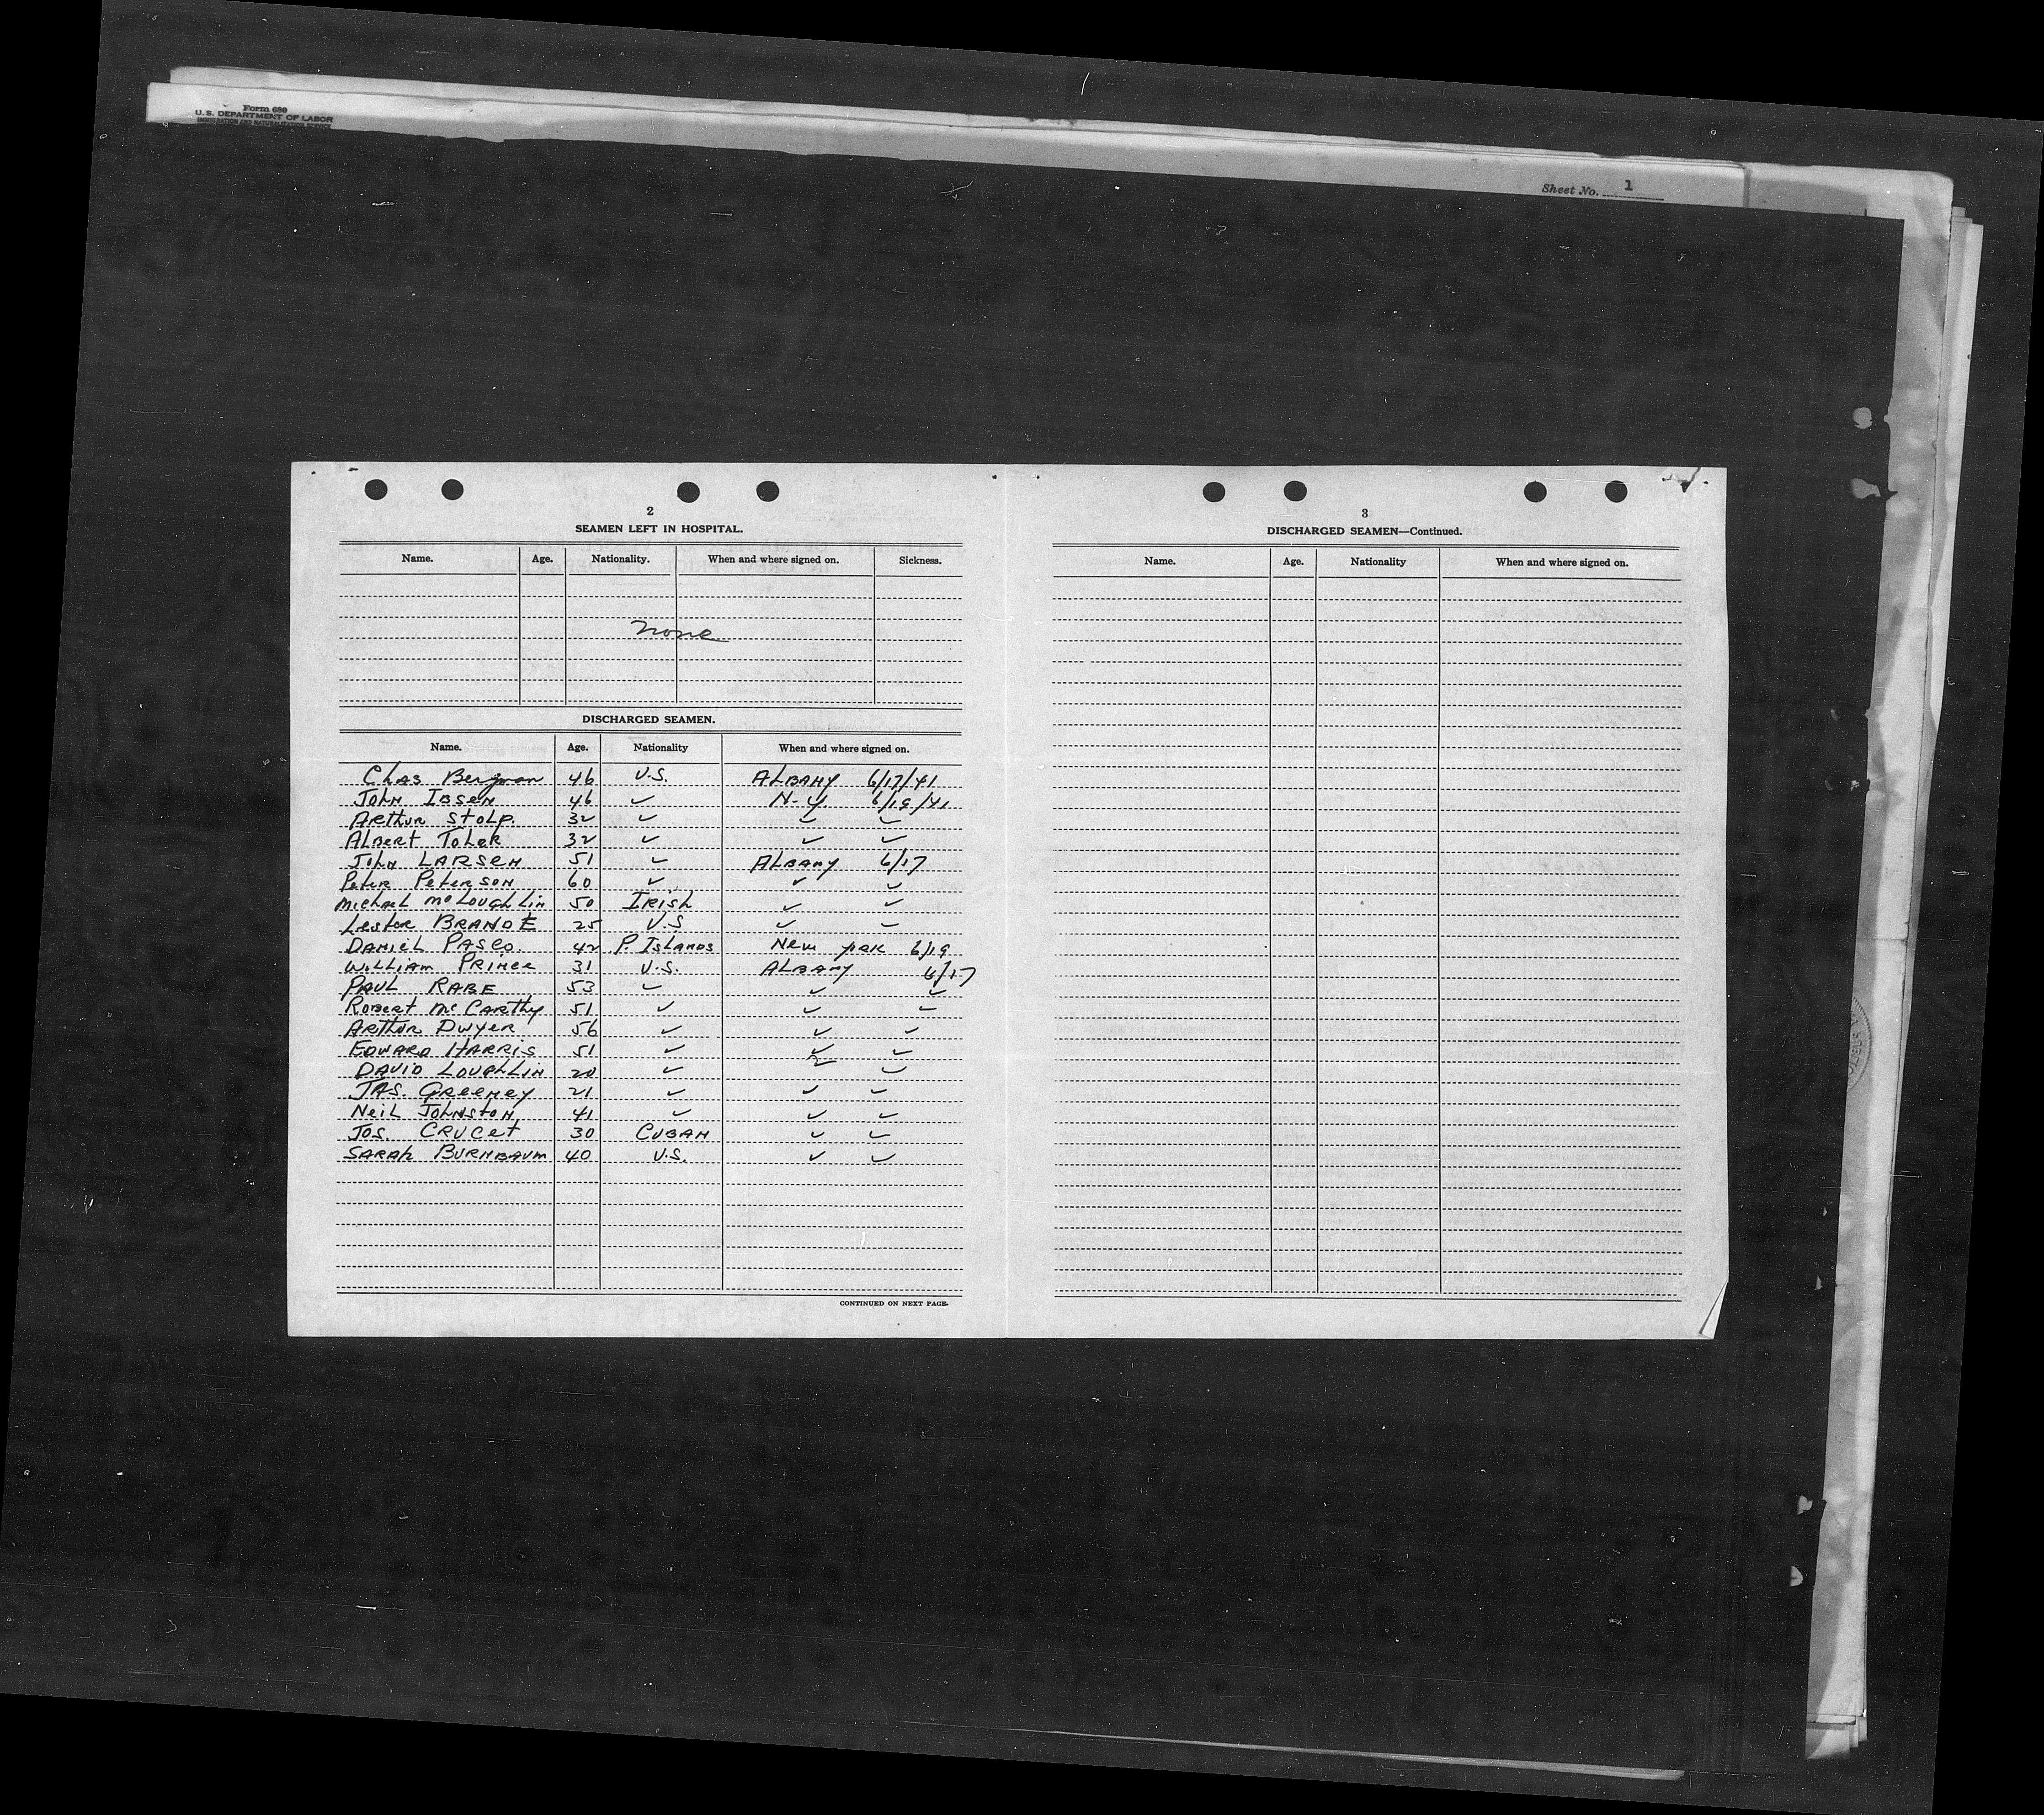 Form 680
U.S. DEPARTMENT OF LABOR
IMMIGRATION AND NATURALIZATION SERVICE
Sheet No. 1
2
SEAMEN LEFT IN HOSPITAL.
Name. Age. Nationality. When and where signed on. Sickness.
none
DISCHARGED SEAMEN.
Name. Age. Nationality When and where signed on.
Chas Bergman 46 U.S. ALBANY 6/17/41
John IBSEN 46 ✓ N-Y 6/19/41
ARthur Stolp. 32 ✓ ✓ ✓
ALBERT 32 ✓ ✓ ✓
John LARSEN 51 ✓ ALBANY 6/17
Peter PETERSON 60 ✓ ✓ ✓
Michael McLoughLin 50 IRISh ✓ ✓
Lester BRANDE 25 U.S ✓ ✓
DANIEL PASCO. 42 P. ISLANDS New york 6/19
William PRINCE 31 U.S. ALBANY 6/17
PAUL RABE 53 ✓ ✓ ✓
ROBERT McCARthy 51 ✓ ✓ ✓
ARthur DWYER 56 ✓ ✓ ✓
EDWARD HARRIS 51 ✓ ✓ ✓
DAVID LOUGHLIN 20 ✓ ✓ ✓
JAS. GREENEY 21 ✓ ✓ ✓
NEIL JOHNSTON 41 ✓ ✓ ✓
JOS. CRUCET 30 CUBAN ✓ ✓
SARAh BURNBAUM 40 U.S. ✓ ✓
CONTINUED ON NEXT PAGE.
3
DISCHARGED SEAMEN—Continued.
Name. Age. Nationality When and where signed on.